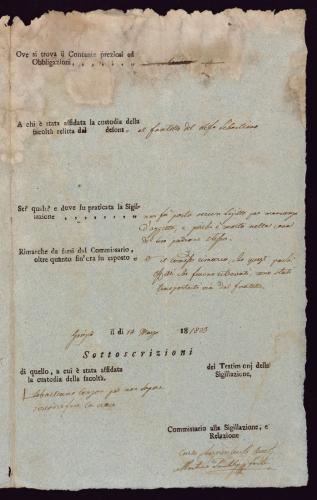 Ove si trova il Contante preziosi ed
Obbligazioni,
A chi è stata affidata la custodia della
facoltà relitta dal defont.
al fratello del defo Sebastiano
Se? quale? e dove fu praticata la Sigil-
lazione
non fù posto verun sigillo per mancanza
d'oggetto, e perchè è morto nella casa
del suo padrone stesso.
Rimarche da farsi dal Commissario,
oltre quanto fin'cra fu esposto
il
che quei pochi
effetti che furono ritrovati, sono stati
trasportati via dal fratello.
il dì 14 Marzo 18 1803
Sottoscrizioni
di quello, a cui è stata affidata
la custodia della facoltà.
dei Testimonj della
Sigillazione,
Sebastiano per non sapere
scrivere fece la croce
Commissario alla Sigillazione, e
Relazione